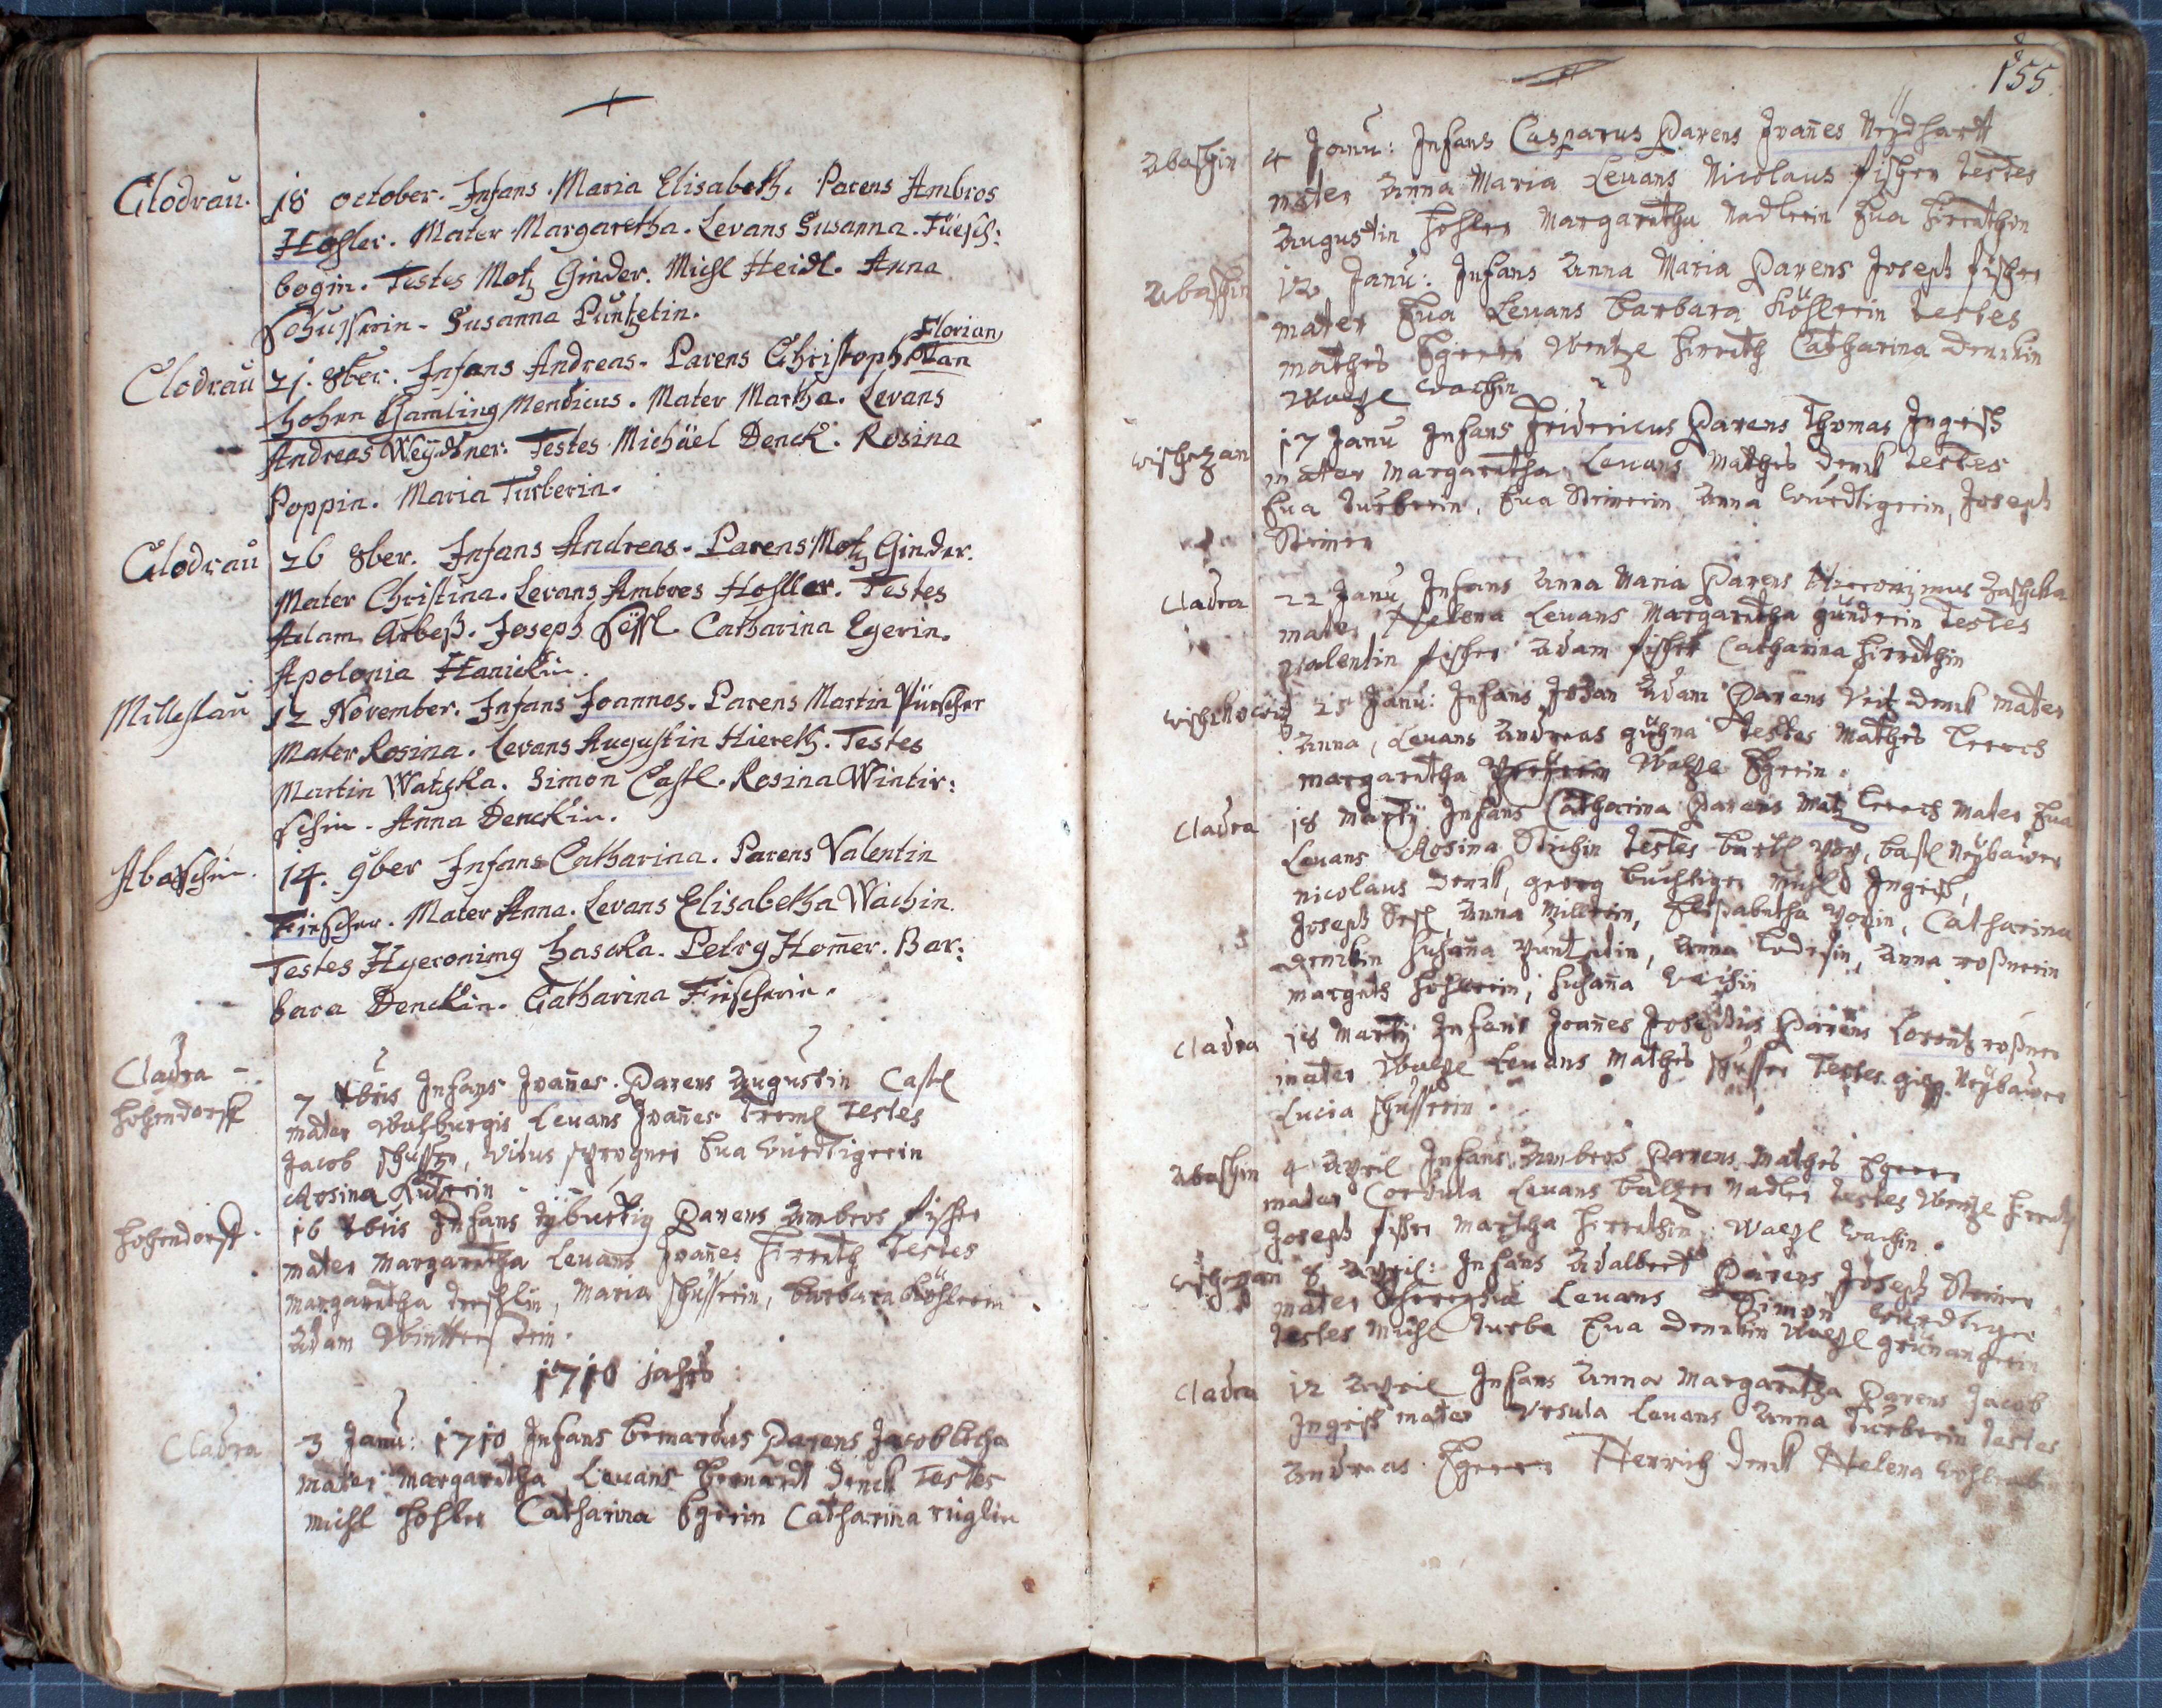 Clodrau. 18 october. Infans. Maria Elisabeth. Parens Ambros
Hohler. Mater Margaretha. Levans Susanna. Füesch:
bogin. Testes Motz Ginder. Michl Heidl. Anna
Schusserin. Susanna Puntzetin.
Florian
Clodrau 21. 8ber. Infans Andreas. Parens Christoph
Mendicus. Mater Martha. Levans
Andreas Weydner. Testes Michäel Denck. Rosina
Poppin. Maria Turberin.
Clodrau 26 8ber. Infans Andreas. Parens Motz Ginder.
Mater Christina. Levans Ambros Hohller. Testes
Adam Arbeß. Joseph Catharina Egerin.
Apolonia Hanickin.
Milleslau 12 November. Infans Joannes. Parens Martin Pürscher
Mater Rosina. Levans Augustin Hiereth. Testes
Martin Watzka. Simon Castl. Rosina Winter:
Anna Denckin.
Abasschin. 14. 9ber Infans Catharina. Parens Valentin
Finscher. Mater Anna. Levans Elisabetha Wachin.
Testes Hyeronimg Petrg Hom̄er. Bar:
bara Denckin. Catharina Finscherin.
Cladra
hohendorff 7 Xbris Infans Joan̄es. Parens Augustin Castl
mater Walburgis Levans Joan̄es Treml Testes
Jacob Vitus Eua
Rosina
hohendorff. 16 Xbris Infans Parens Ambros fischer
mater margaretha Leuans Joan̄es hirreth Testes
margaretha Maria schusserin, barbara köhlerin
Adam Wintterstein.
1710 jahrs
Cladra 3 Janu: 1710 Infans bernardus Parens Jacob
mater margaretha Leuans bernardt denck Testes
michl hohler Catharina Egerin Catharina
155.
Abaschin 4 Janu: Infans Casparus Parens Joan̄es Neydhartt
mater Anna Maria Leuans Nicolaus fischer Testes
Augustin hohler Margaretha Nadlerin Eua hirrethin
Abaschin 12 Janu: Infans Anna Maria Parens Joseph fischer
mater Eua Leuans barbara Köhlerin Testes
mathes Egerer Wentzl hirreth Catharina Denckin
wachin
wischezan 17 Janu Infans Fridericus Parens Thomas Ingriß
mater Margaretha Leuans Mathes denck Testes
Eua Turberin, Eua Steinerin Anna Joseph
Steiner
Cladra 22 Janu Infans Anna Maria Parens Hieronymus
mater Helena Leuans Margaretha gündrin Testes
valentin fischer Adam fischer Catharina hirrethin
25 Janu: Infans Johan Adam Parens Veit denck mater
Anna, Leuans Andreas Testes Mathes
margaretha Egerin.
Cladra 18 Martij Infans Catharina Parens Matz mater Eua
Leuans Rosina Testes
nicolaus Denck, georg michl Ingriß,
Joseph Anna Millerin, Elisabetha Catharina
denckin susan̄a Anna Anna
margeth hohlerin, susan̄a
Cladra 18 Martij Infans Joan̄es Josephus Parens Lorentz
mater Leuans Mathes schusser Testes
Lucia schusserin.
Abaschin 4 April Infans Ambros Parens Mathes Egerer
mater Cordula Leuans Nadler Testes Wentzl hirreth
Joseph fischer Martha hirrethin wachin.
wischezan 8 April: Infans Adalbert Parens Joseph Steiner
mater Leuans Simon
Testes Michl turba Eua Denckin
Cladra 12 April Infans Anna Margaretha Parens Jacob
Ingriß mater Ursula Leuans Anna Turberin Testes
Andreas Egerer Henrich denck Helena